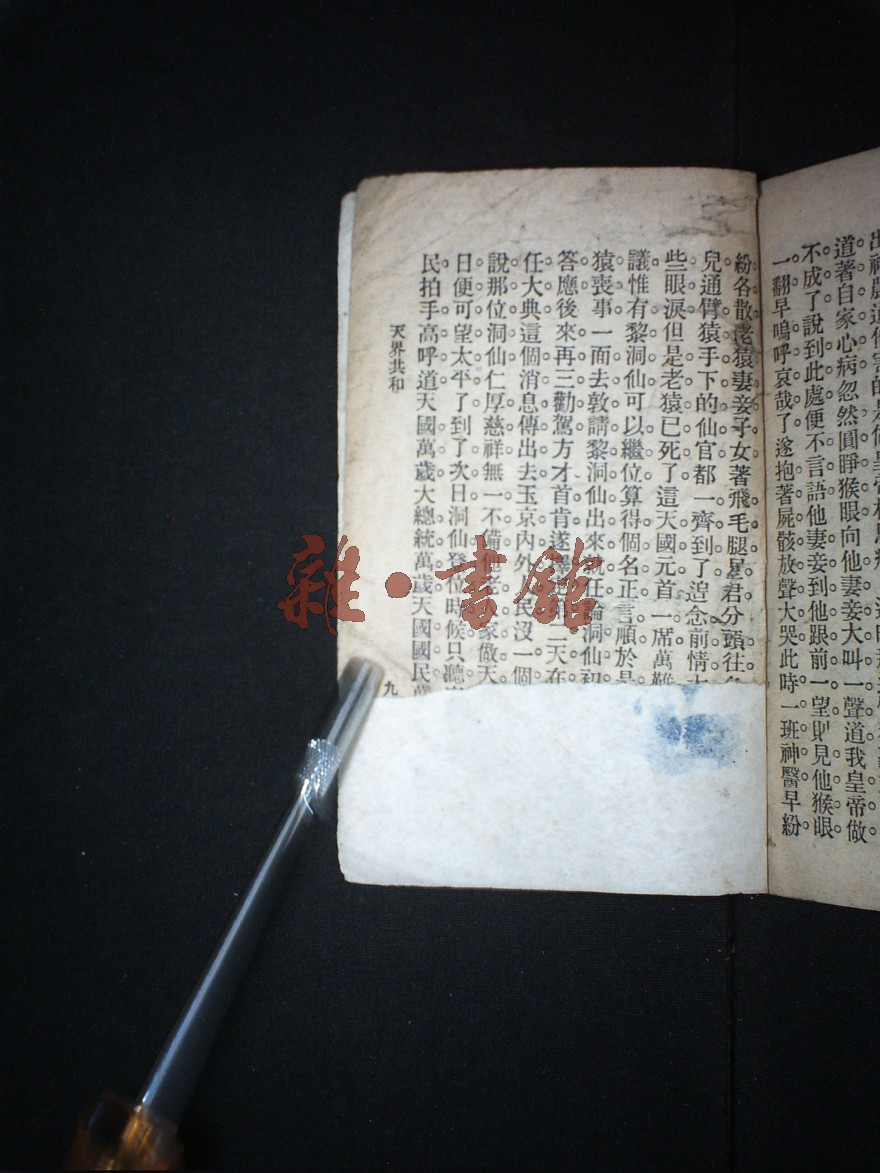 道著自家心病忽然圓睜猴眼向他妻妾大叫一聲道我皇帝做
不成了說到此處便不言語他妻妾到他跟前一望則見他猴眼
一翻早嗚呼哀哉了遂抱著屍骸放聲大哭此時一班神醫早紛
紛各散老猿妻妾子女著飛毛腿星君分頭往
兒通臂猿手下的仙官都一齊到了追念前情
些眼淚但是老猿已死了這天國元首一席萬難
議惟有黎洞仙可以繼位算得個名正言順於是
猿喪事一面去敦請黎洞仙出來就任論洞仙初
答應後來再三勸駕方才首肯遂擇定第二天在
任大典這個消息傳出去玉京內外人民沒一個
說那位洞仙仁厚慈祥無一不備他老人家做天
日便可望太平了到了次日洞仙登位時候只聽
民拍手高呼道天國萬歲大總統萬歲天國國民萬
天界共和
九
雜·書館